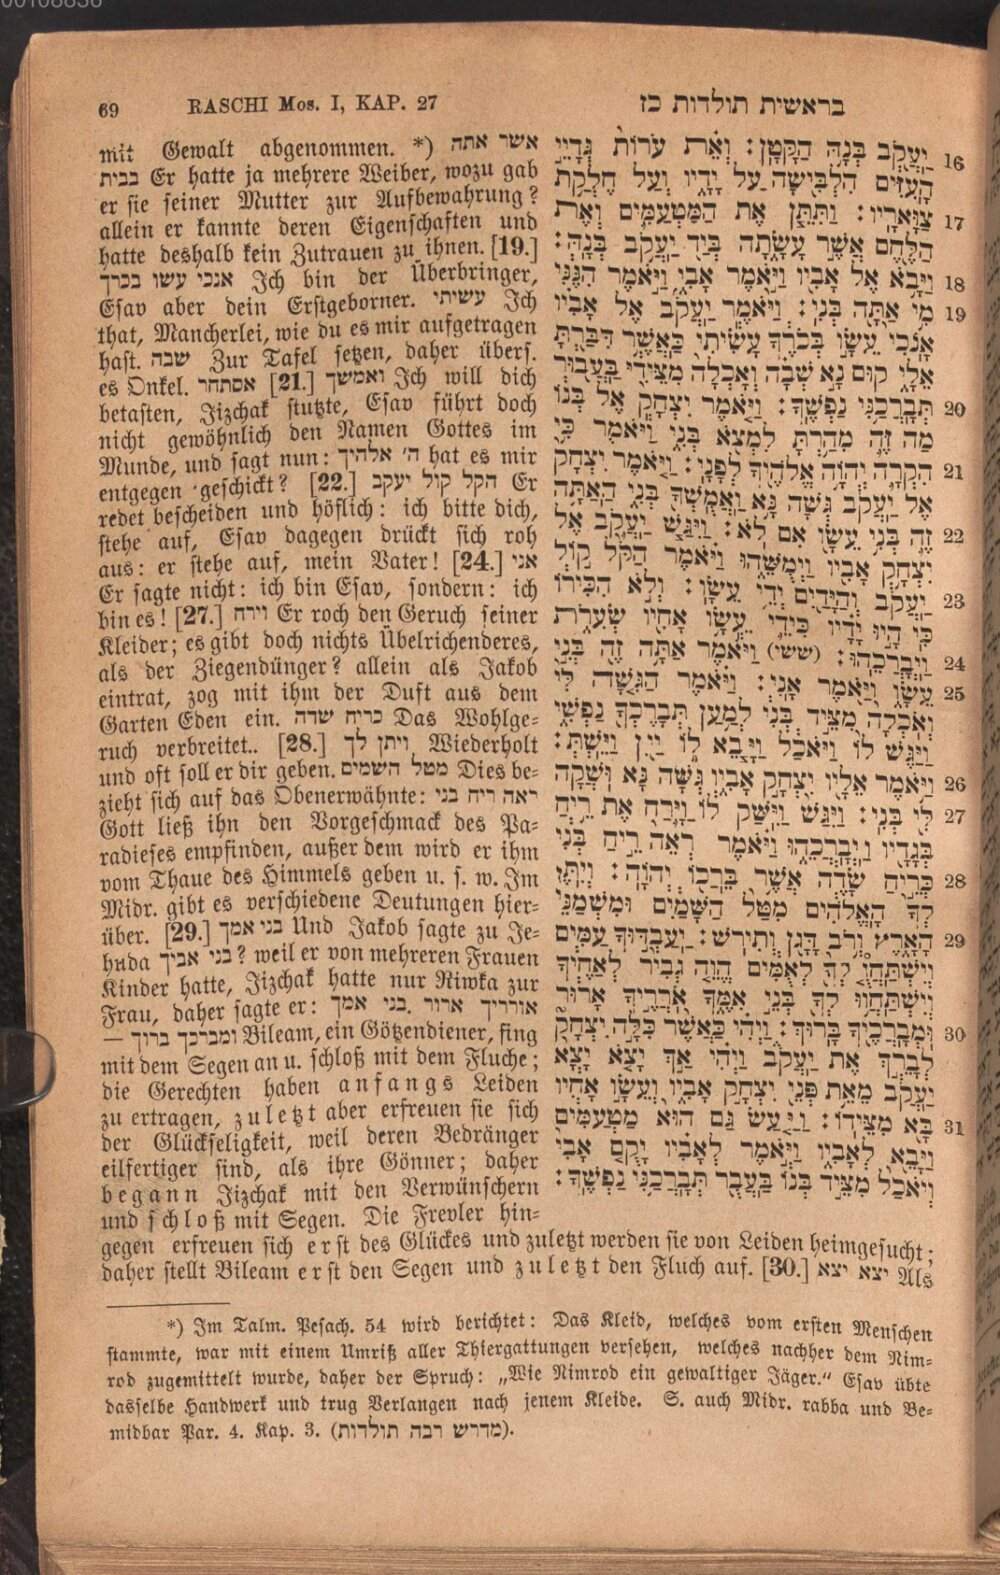 69 RASCHI Mos. I, KAP. 27 בראשית תולדות כז
mit Gewalt abgenommen. *) אשר אתה
בבית Er hatte ja mehrere Weiber, wozu gab
er sie seiner Mutter zur Aufbewahrung?
allein er kannte deren Eigenschaften und
hatte deshalb kein Zutrauen zu ihnen. [19.]
אנכי עשו בכרך Ich bin der Überbringer,
Esav aber dein Erstgeborner. עשיתי Ich
that, Mancherlei, wie du es mir aufgetragen
hast. שבה Zur Tafel setzen, daher übers.
es Onkel. אסתחר [21.] ואמשך Ich will dich
betasten, Jizchak stutzte, Esav führt doch
nicht gewöhnlich den Namen Gottes im
Munde, und sagt nun: ה' אלהיך hat es mir
entgegen geschickt? [22.] הקל קול יעקב Er
redet bescheiden und höflich: ich bitte dich,
stehe auf, Esav dagegen drückt sich roh
aus: er stehe auf, mein Vater! [24.] אני
Er sagte nicht: ich bin Esav, sondern: ich
bin es! [27.] וירח Er roch den Geruch seiner
Kleider; es gibt doch nichts Übelrichenderes,
als der Ziegendünger? allein als Jakob
eintrat, zog mit ihm der Duft aus dem
Garten Eden ein. כריח שדה Das Wohlge-
ruch verbreitet.. [28.] ויתן לך Wiederholt
und oft soll er dir geben. מטל השמים Dies be-
zieht sich auf das Obenerwähnte: ראה ריח בני
Gott ließ ihn den Vorgeschmack des Pa-
radieses empfinden, außerdem wird er ihm
vom Thaue des Himmels geben u. s. w. Im
Midr. gibt es verschiedene Deutungen hier-
über. [29.] בני אמך Und Jakob sagte zu Je-
huda בני אביך? weil er von mehreren Frauen
Kinder hatte, Jizchak hatte nur Riwka zur
Frau, daher sagte er: בני אמך. אורריך ארור
— ומברכך ברוך Bileam, ein Götzendiener, fing
mit dem Segen an u. schloß mit dem Fluche;
die Gerechten haben anfangs Leiden
zu ertragen, zuletzt aber erfreuen sie sich
der Glückseligkeit, weil deren Bedränger
eilfertiger sind, als ihre Gönner; daher
begann Jizchak mit den Verwünschern
und schloß mit Segen. Die Frevler hin-
gegen erfreuen sich erst des Glückes und zuletzt werden sie von Leiden heimgesucht;
daher stellt Bileam erst den Segen und zuletzt den Fluch auf. [30.] יצא יצא Als
יַעֲקֹב בְּנָהּ הַקָּטָן: וְאֵת עֹרוֹת גְּדָיֵי 16
הָעִזִּים הִלְבִּישָׁה עַל יָדָיו וְעַל חֶלְקַת
צַוָּארָיו: וַתִּתֵּן אֶת הַמַּטְעַמִּים וְאֶת 17
הַלֶּחֶם אֲשֶׁר עָשָׂתָה בְּיַד יַעֲקֹב בְּנָהּ:
וַיָּבֹא אֶל אָבִיו וַיֹּאמֶר אָבִי וַיֹּאמֶר הִנֶּנִּי 18
מִי אַתָּה בְּנִי: וַיֹּאמֶר יַעֲקֹב אֶל אָבִיו 19
אָנֹכִי עֵשָׂו בְּכֹרֶךָ עָשִׂיתִי כַּאֲשֶׁר דִּבַּרְתָּ
אֵלָי קוּם נָא שְׁבָה וְאָכְלָה מִצֵּידִי בַּעֲבוּר
תְּבָרֲכַנִּי נַפְשֶׁךָ: וַיֹּאמֶר יִצְחָק אֶל בְּנוֹ 20
מַה זֶּה מִהַרְתָּ לִמְצֹא בְּנִי וַיֹּאמֶר כִּי
הִקְרָה יְהוָה אֱלֹהֶיךָ לְפָנָי: וַיֹּאמֶר יִצְחָק 21
אֶל יַעֲקֹב גְּשָׁה נָּא וַאֲמֻשְׁךָ בְּנִי הַאַתָּה
זֶה בְּנִי עֵשָׂו אִם לֹא: וַיִּגַּשׁ יַעֲקֹב אֶל 22
יִצְחָק אָבִיו וַיְמֻשֵּׁהוּ וַיֹּאמֶר הַקֹּל קוֹל
יַעֲקֹב וְהַיָּדַיִם יְדֵי עֵשָׂו: וְלֹא הִכִּירוֹ 23
כִּי הָיוּ יָדָיו כִּידֵי עֵשָׂו אָחִיו שְׂעִרֹת
וַיְבָרְכֵהוּ: (ששי) וַיֹּאמֶר אַתָּה זֶה בְּנִי 24
עֵשָׂו וַיֹּאמֶר אָנִי: וַיֹּאמֶר הַגִּשָׁה לִּי 25
וְאֹכְלָה מִצֵּיד בְּנִי לְמַעַן תְּבָרֶכְךָ נַפְשִׁי
וַיַּגֶּשׁ לוֹ וַיֹּאכַל וַיָּבֵא לוֹ יַיִן וַיֵּשְׁתְּ:
וַיֹּאמֶר אֵלָיו יִצְחָק אָבִיו גְּשָׁה נָּא וּשְׁקָה 26
לִּי בְּנִי: וַיִּגַּשׁ וַיִּשַּׁק לוֹ וַיָּרַח אֶת רֵיחַ 27
בְּגָדָיו וַיְבָרֲכֵהוּ וַיֹּאמֶר רְאֵה רֵיחַ בְּנִי
כְּרֵיחַ שָׂדֶה אֲשֶׁר בֵּרֲכוֹ יְהוָה: וְיִתֶּן 28
לְךָ הָאֱלֹהִים מִטַּל הַשָּׁמַיִם וּמִשְׁמַנֵּי
הָאָרֶץ וְרֹב דָּגָן וְתִירֹשׁ: יַעַבְדוּךָ עַמִּים 29
וְיִשְׁתַּחֲוֻ לְךָ לְאֻמִּים הֱוֵה גְבִיר לְאַחֶיךָ
וְיִשְׁתַּחֲווּ לְךָ בְּנֵי אִמֶּךָ אֹרְרֶיךָ אָרוּר
וּמְבָרֲכֶיךָ בָּרוּךְ: וַיְהִי כַּאֲשֶׁר כִּלָּה יִצְחָק 30
לְבָרֵךְ אֶת יַעֲקֹב וַיְהִי אַךְ יָצֹא יָצָא
יַעֲקֹב מֵאֵת פְּנֵי יִצְחָק אָבִיו וְעֵשָׂו אָחִיו
בָּא מִצֵּידוֹ: וַיַּעַשׂ גַּם הוּא מַטְעַמִּים 31
וַיָּבֵא לְאָבִיו וַיֹּאמֶר לְאָבִיו יָקֻם אָבִי
וְיֹאכַל מִצֵּיד בְּנוֹ בַּעֲבֻר תְּבָרֲכַנִּי נַפְשֶׁךָ:
*) Im Talm. Pesach. 54 wird berichtet: Das Kleid, welches vom ersten Menschen
stammte, war mit einem Umriß aller Thiergattungen versehen, welches nachher dem Nim-
rod zugemittelt wurde, daher der Spruch: „Wie Nimrod ein gewaltiger Jäger.“ Esav übte
dasselbe Handwerk und trug Verlangen nach jenem Kleide. S. auch Midr. rabba und Be-
midbar Par. 4. Kap. 3. (מדרש רבה תולדות).